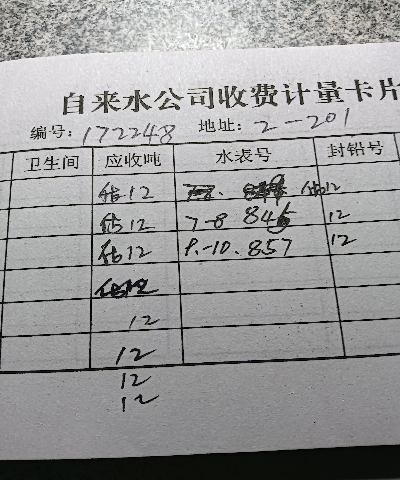 自来水公司收费计量卡片
编号: 172248 地址: 2-201
卫生间 应收吨 水表号 封铅号
估12 估12
估12 7-8 845 12
估12 9.-10. 857 12
估12
12
12
12
12